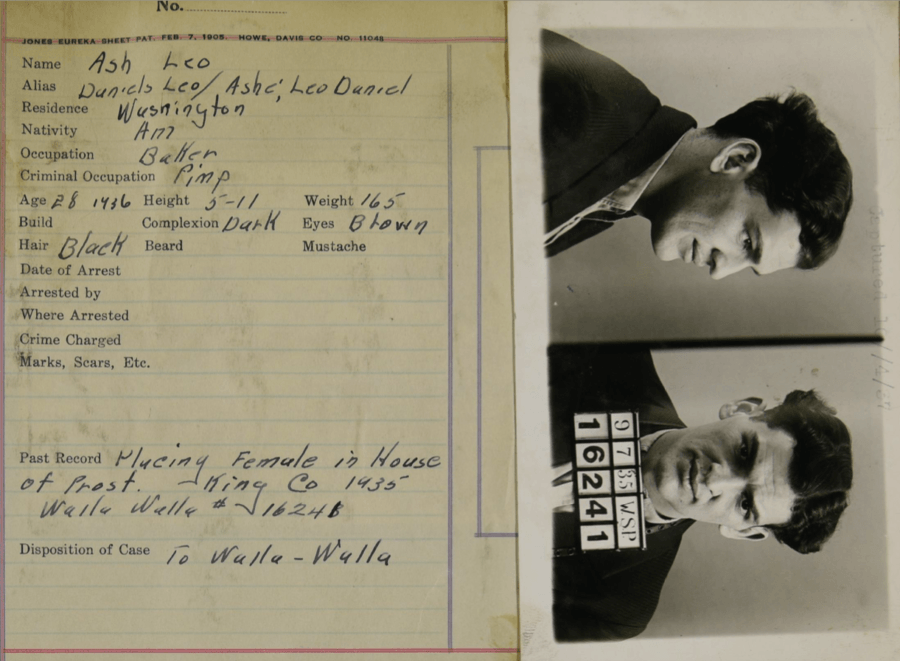 No.
JONES EUREKA SHEET PAT. FEB. 7, 1905. HOWE, DAVIS CO NO. 11048
Name Ash Leo
Alias Daniels Leo/ Ashe, Leo Daniel
Residence Washington
Nativity Am
Occupation Baker
Criminal Occupation Pimp
Age 28 1936 Height 5-11 Weight 165
Build Complexion Dark Eyes Brown
Hair Black Beard Mustache
Date of Arrest
Arrested by
Where Arrested
Crime Charged
Marks, Scars, Etc.
Past Record Placing Female in House
of Prost. - King Co 1935
Walla Walla # 16241
Disposition of Case To Walla-Walla
9 7 35 WSP
16241